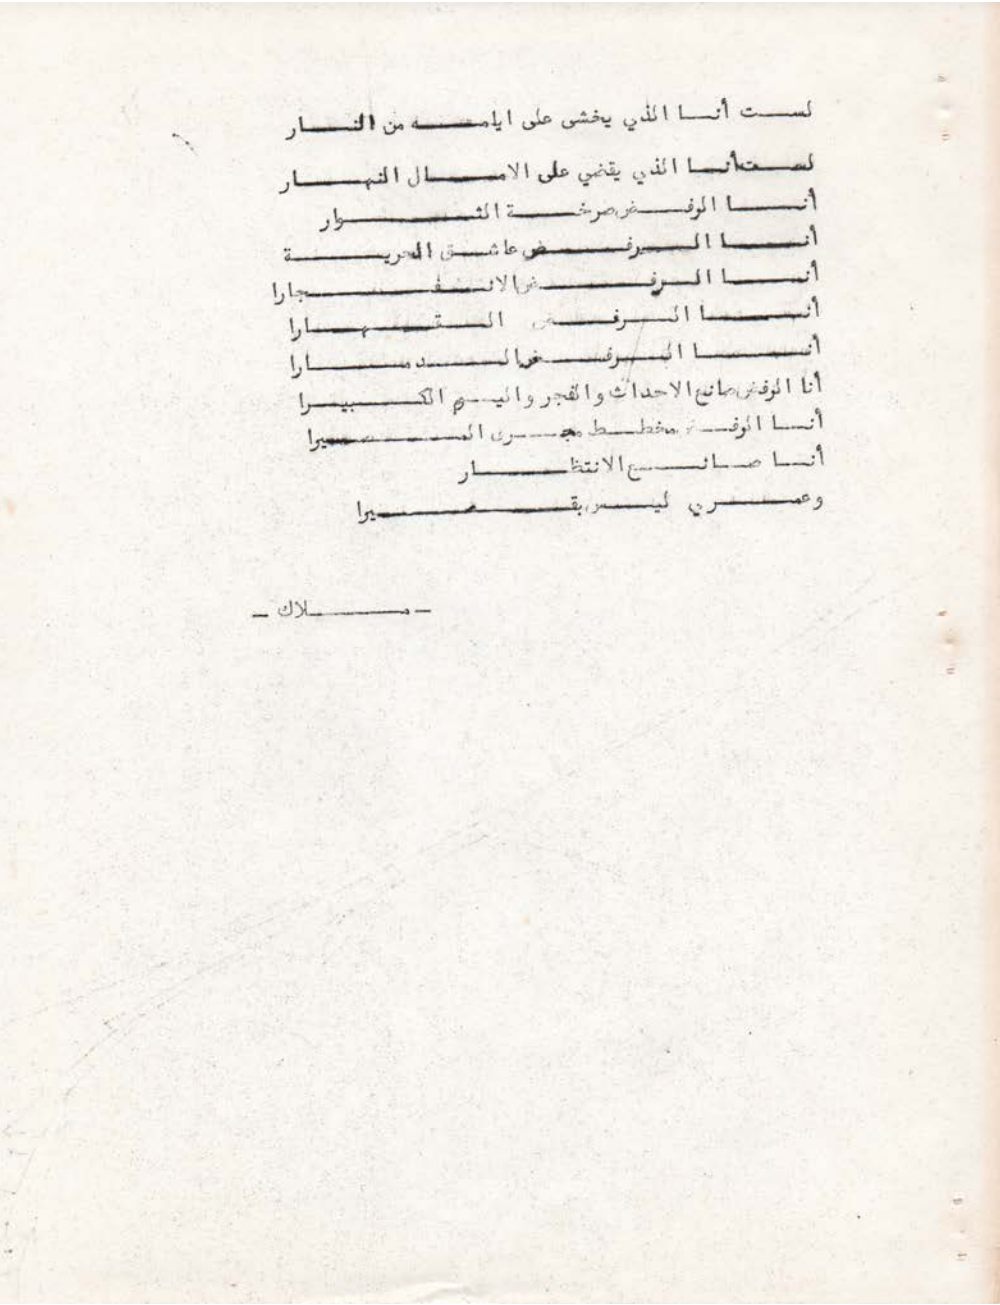 لست أنا الذي يخشى على ايامه من النار
لست أنا الذي يقضي على الامال النهار
أنا الرفض صرخة الثوار
أنا الرفض عاشق الحرية
أنا الرفض الانفجارا
أنا الرفض القهارا
أنا الرفض الدمارا
أنا الرفض صانع الاحداث والفجر واليم الكبيرا
أنا الرفض مخطط مجرى المصيرا
أنا صانع الانتظار
وعمري ليس بقصيرا
- ملاك -